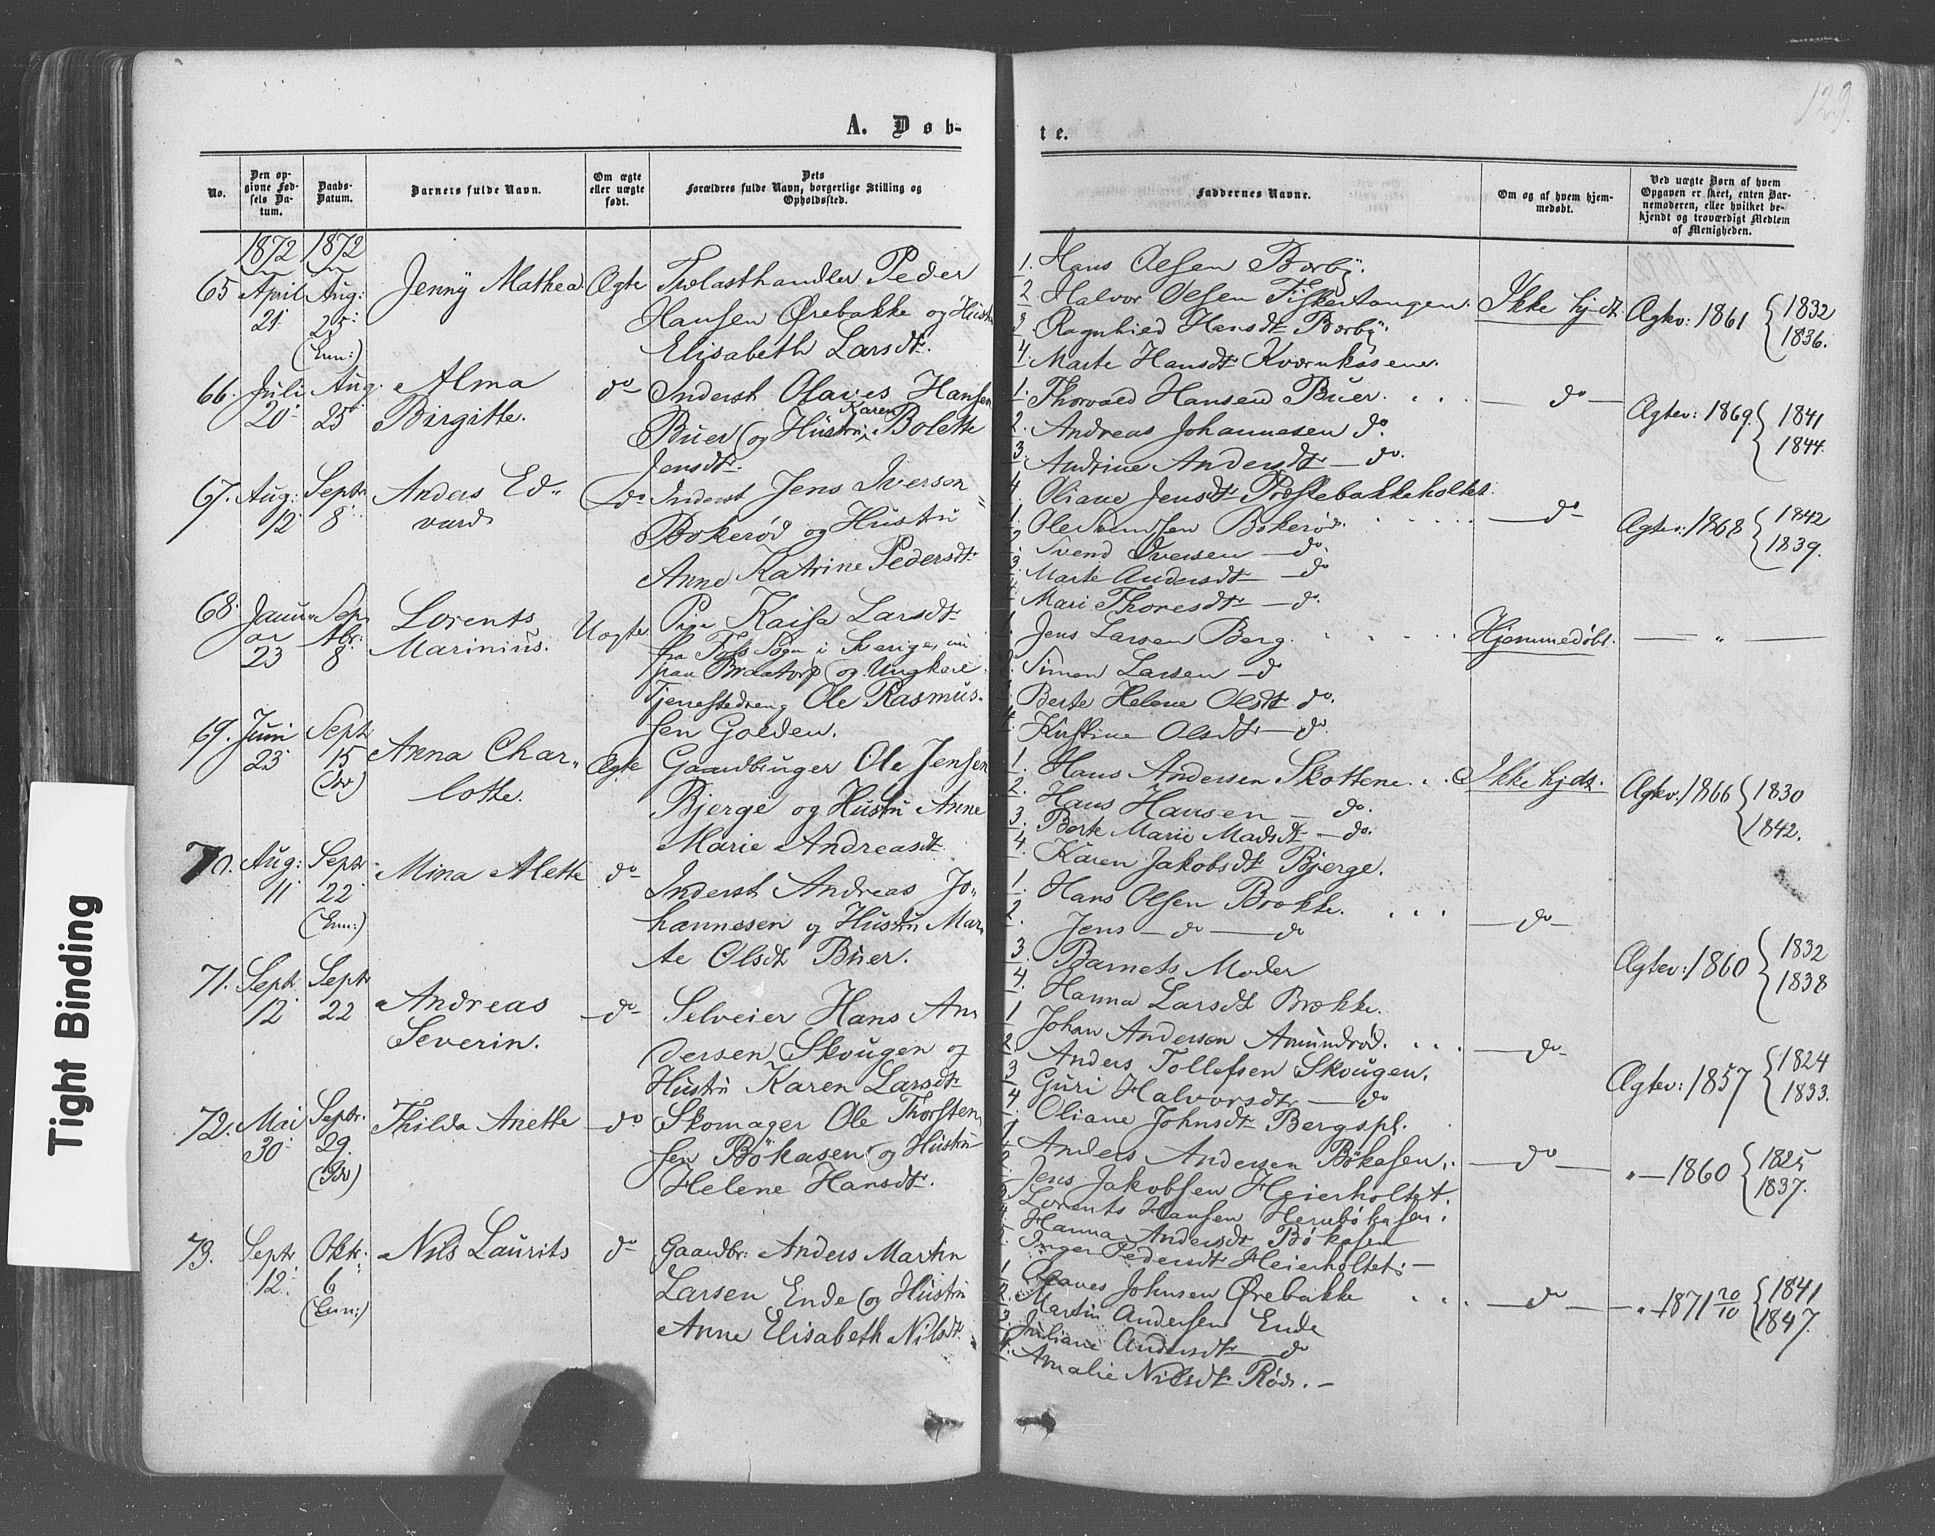 129.
A. Døb-
te.
No.
Den op-
givne Fød-
sels Da-
tum.
Daabs-
Datum.
Barnets fulde Navn.
Om ægte
eller uægte
født.
Dets
Forældres fulde Navn, borgerlige Stilling og
Opholdssted.
Faddernes Navne.
Om og af hvem hjem-
medøbt.
Ved uægte Børn af hvem
Opgaven er skeet, enten Bar-
nemoderen, eller hvilket be-
kjendt og troværdigt Medlem
af Menigheden.
1872 1872
65 April 21. Aug: 25. (Enn:)
Jenny Mathea
Ægte
Trælasthandler Peder
Hansen Ørebakke og Hustru
Elisabeth Larsdt.
1. Hans Olsen Borby.
2. Halvor Olsen Fiskertangen.
3. Ragnhild Hansdt Borby.
4. Marte Hansdt Kværnkasene.
Ikke hj.dt.
Ægtev: 1861 {1832
1836.
66. Juli 20. Aug. 25.
Alma
Birgitte.
do
Inderst Olaves Hansen
Buer (og Hustru Karen Bolette
Jensdt.
1. Thorvald Hansen Buer.
2. Andreas Johannesen do.
3. Andrine Andersdt — do.
4. Oliane Jensdt Præstebakkeholtet.
— do —
Ægtev: 1869. {1841
1844.
67. Aug: 12. Septr 8.
Anders Ed-
vard
do
Inderst Jens Iverson
Bokerød og Hustru
Anne Katrine Pedersdt.
1. Ole Svendsen Bokerød.
2. Svend Iversen — do.
3. Marte Andersdt — do
4. Mari Thoresdt — do.
— do —
Ægtev: 1868 {1842
1839.
68. Janu-
ar
23 Sep-
tbr:
8
Lorents
Marinius.
Uægte
Pige Kaisa Larsdt.
fra Foss Sogn i Sverige, nu
paa Braatorp (og Ungkarl
Tjenestedreng Ole Rasmus-
sen Golden.
1. Jens Larsen Berg.
2. Simon Larsen — do
3. Berte Helene Olsdt do.
4. Kirstine Olsdt — do.
Hjemmedøbt.
— " —
69. Juni 23 Septr 15
Anna Char-
lotte.
Ægte
Gaardbruger Ole Jensen
Bjerge og Hustru Anne
Marie Andreasdt
1. Hans Andersen Skottene.
2. Hans Hansen — do.
3. Berte Marie Madsdt — do.
4. Karen Jakobsdt Bjerge.
Ikke hjdt.
Ægtev: 1866 {1830
1842.
70. Aug: 11. Septr 22. (Enn:)
Mina Alette
do
Inderst Andreas Jo-
hannesen og Hustru Mar-
te Olsdt Buer.
1. Hans Olsen Brække.
2. Jens — do — do
3. Barnets Moder
4. Hanna Larsdt Brække.
— do —
Ægtev: 1860 {1832
1838
71. Septr 12. Septr 22
Andreas
Severin.
— do —
Selveier Hans An-
dersen Skougen og
Hustru Karen Larsdt.
1 Johan Andersen Amundrød.
2 Anders Tollefsen Skougen.
3 Guri Halvorsdt — do
4. Oliane Johnsdt Bergspl.
— do —
Ægtev: 1857 {1824
1833.
72. Mai 30. Septr. 29.
Thilda Anette
— do
Skomager Ole Thorsten-
sen Bökasen og Hustru
Helene Hansdt.
1. Anders Andersen Bökasen.
2. Jens Jakobsen Heierholtet.
3. Lorents Hansen
4. Hanna Andersdt Bökasen
5. Inger Pedersdt Heierholtet. —
— do —
" — 1860 {1825
1837.
73. Septr. 12. Oktr: 6 (Enn:)
Nils Laurits
do
Gaardbr: Anders Martin
Larsen Ende (og Hustru
Anne Elisabeth Nilsdt.
1. Olaves Johnsen Ørebakke
2. Martin Andersen Ende
3. Juliane Andersdt — do
4. Amalie Nilsdt Röd. —
— do —
" — 1871 20/10 {1841
1847.
Tight Binding